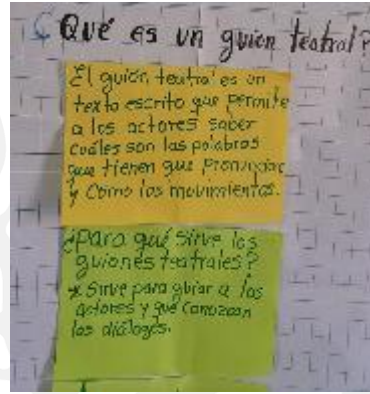 ¿Qué es un guion teatral?
El guión teatral es un
texto escrito que permite
a los actores saber
cuáles son las palabras
que tienen que pronunciar
y como los movimientos.
¿para qué sirve los
guiones teatrales?
* Sirve para guiar a los
actores y que conozcan
los diálogos.